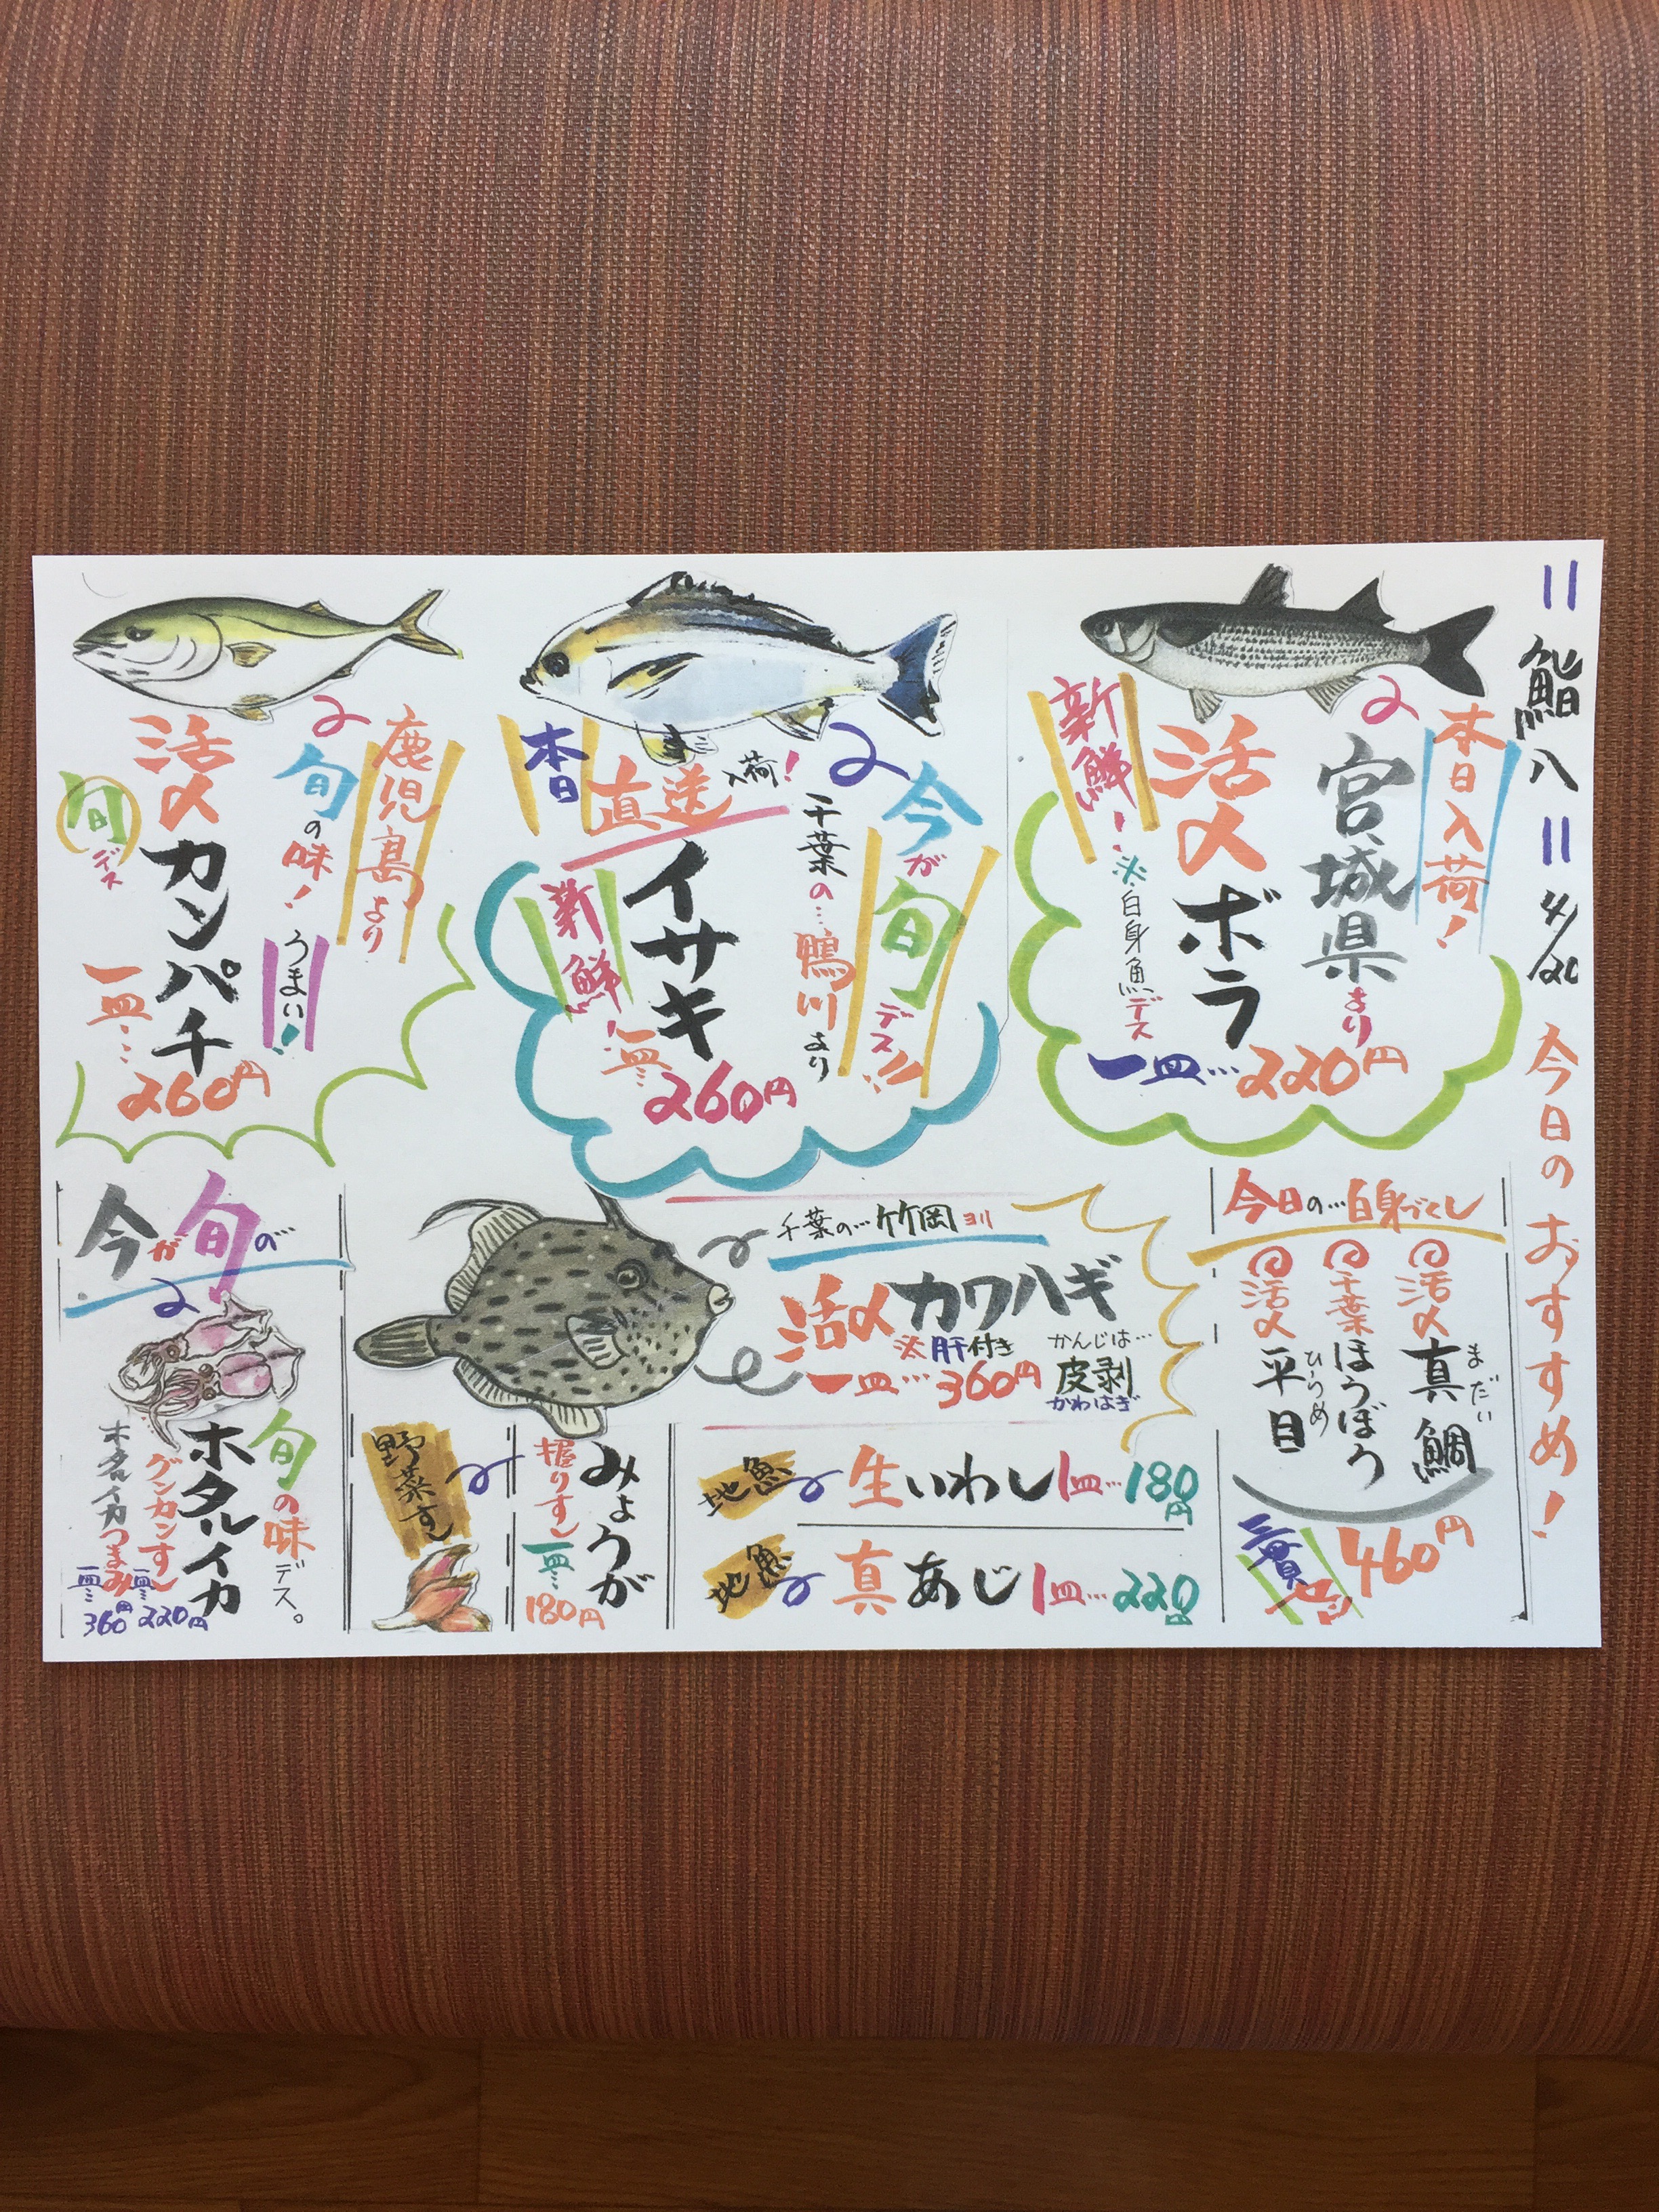 鮨八
4/20
今日のおすすめ!
本日入荷!
宮城県より
活〆ボラ
新鮮!
※白身魚デス
一皿…220円
今が旬デス!!
千葉の…鴨川より
本日直送入荷!
イサキ
新鮮!
一皿…260円
鹿児島より
旬の味!
うまい!
活〆カンパチ
旬デス
一皿…260円
今日の…白身づくし
活〆真鯛
まだい
千葉ほうぼう
活〆平目
ひらめ
三貫
460円
千葉の…竹岡ヨリ
活〆カワハギ
※肝付き
一皿…360円
かんじは…
皮剥
かわはぎ
地魚 生いわし 1皿…180円
地魚 真あじ 1皿…220円
みょうが
握りすし
一皿…180円
野菜すし
今が旬の
旬の味デス。
ホタルイカ
グンカンすし
一皿…220円
ホタルイカつまみ
一皿…360円